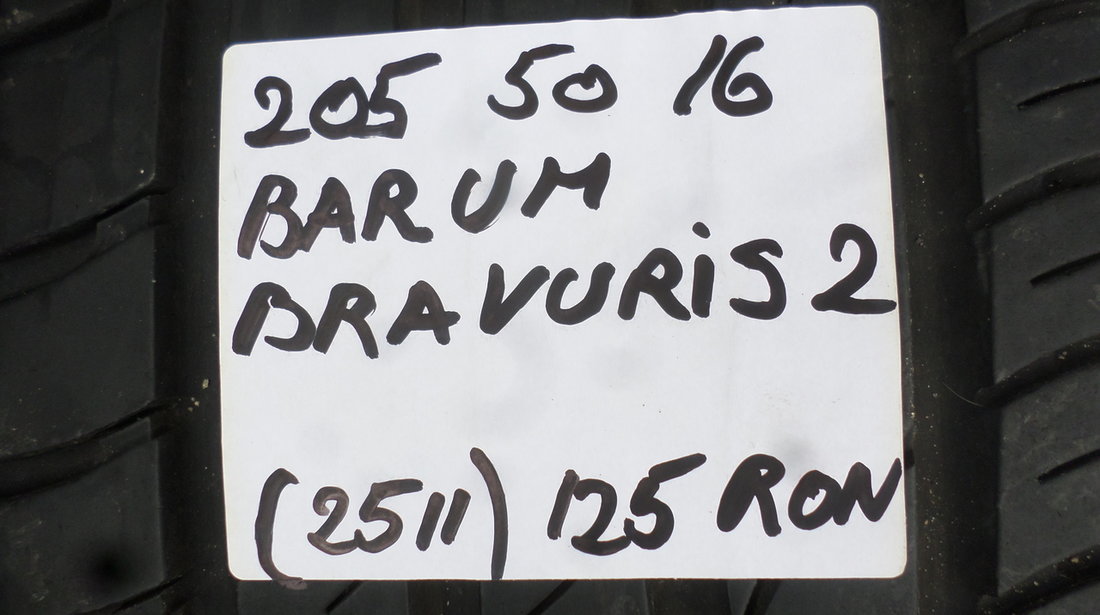 205 50 16
BARUM
BRAVURIS 2
(2511) 125 RON